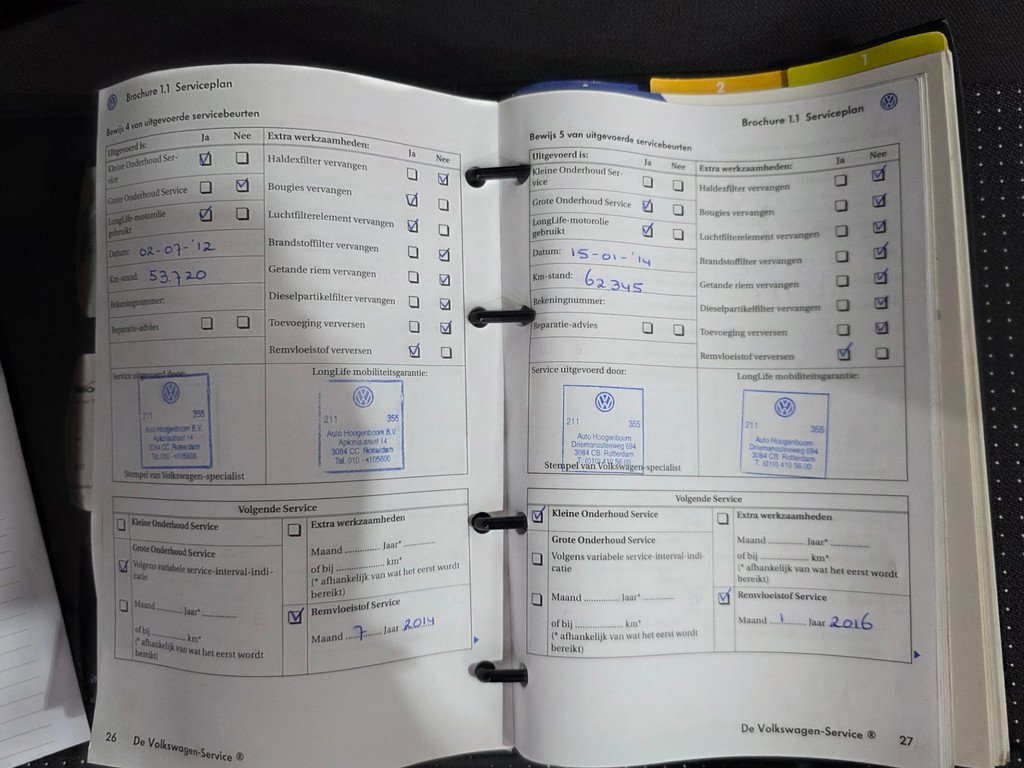 Brochure 1.1 Serviceplan
Bewijs 4 van uitgevoerde servicebeurten
Uitgevoerd is: Ja Nee
Kleine Onderhoud Ser-
vice
Grote Onderhoud Service
LongLife-motorolie
gebruikt
Datum: 02-07-'12
Km-stand: 53.720
Rekeningnummer:
Reparatie-advies
Extra werkzaamheden: Ja Nee
Haldexfilter vervangen
Bougies vervangen
Luchtfilterelement vervangen
Brandstoffilter vervangen
Getande riem vervangen
Dieselpartikelfilter vervangen
Toevoeging verversen
Remvloeistof verversen
Service uitgevoerd door:
211 355
Auto Hoogenboom B.V.
3084 CC Rotterdam
Tel. 010 - 4105600
Stempel van Volkswagen-specialist
LongLife mobiliteitsgarantie:
211 355
Auto Hoogenboom B.V.
3084 CC Rotterdam
Tel. 010 - 4105600
Volgende Service
Kleine Onderhoud Service
Grote Onderhoud Service
Volgens variabele service-interval-indi-
catie
Maand ........... Jaar* ..............
of bij .................... km*
(* afhankelijk van wat het eerst wordt
bereikt)
Extra werkzaamheden
Maand .............. Jaar* .............
of bij .................... km*
(* afhankelijk van wat het eerst wordt
bereikt)
Remvloeistof Service
Maand 7 Jaar 2014
26 De Volkswagen-Service ®
2
1
Brochure 1.1 Serviceplan
Bewijs 5 van uitgevoerde servicebeurten
Uitgevoerd is: Ja Nee
Kleine Onderhoud Ser-
vice
Grote Onderhoud Service
LongLife-motorolie
gebruikt
Datum: 15-01-'14
Km-stand: 62345
Rekeningnummer:
Reparatie-advies
Extra werkzaamheden: Ja Nee
Haldexfilter vervangen
Bougies vervangen
Luchtfilterelement vervangen
Brandstoffilter vervangen
Getande riem vervangen
Dieselpartikelfilter vervangen
Toevoeging verversen
Remvloeistof verversen
Service uitgevoerd door:
211 355
Auto Hoogenboom
Driemanssteeweg 694
3084 CB Rotterdam
T. (010) 410 56 00
Stempel van Volkswagen-specialist
LongLife mobiliteitsgarantie:
211 355
Auto Hoogenboom
Driemanssteeweg 694
3084 CB Rotterdam
T. (010) 410 56 00
Volgende Service
Kleine Onderhoud Service
Grote Onderhoud Service
Volgens variabele service-interval-indi-
catie
Maand .............. Jaar* .............
of bij .................... km*
(* afhankelijk van wat het eerst wordt
bereikt)
Extra werkzaamheden
Maand .............. Jaar* .............
of bij .................... km*
(* afhankelijk van wat het eerst wordt
bereikt)
Remvloeistof Service
Maand 1 Jaar 2016
De Volkswagen-Service ® 27